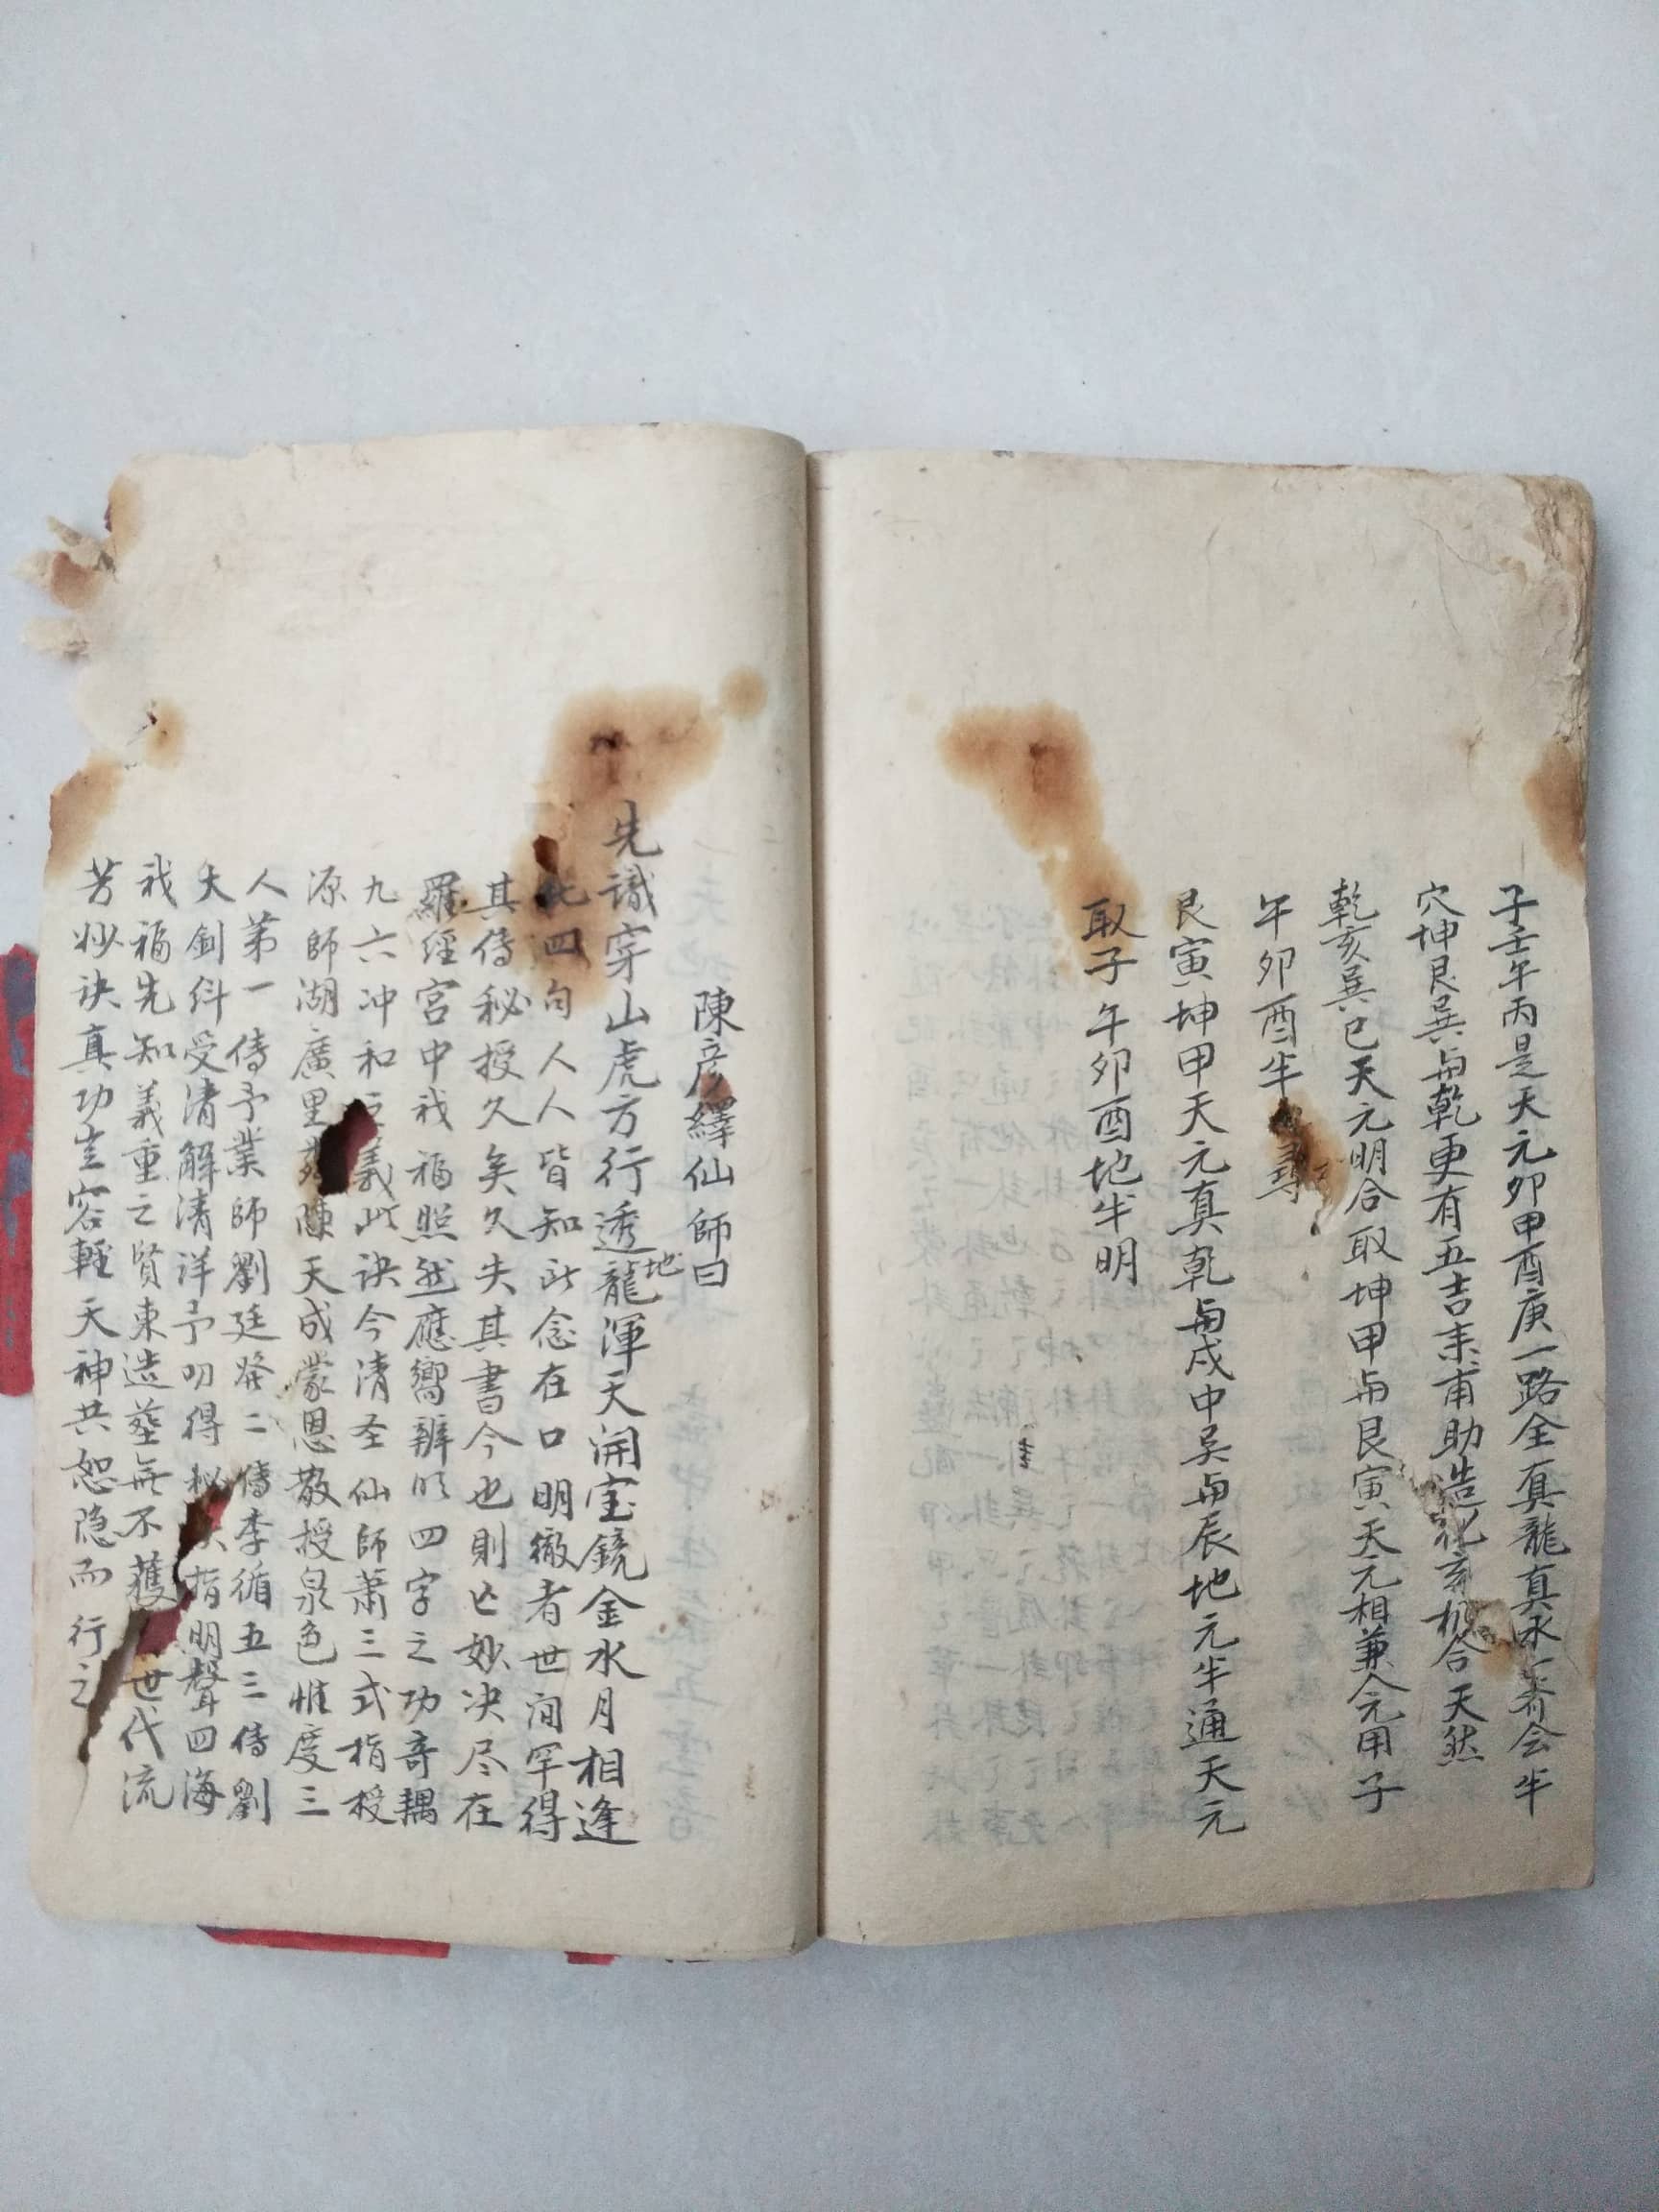 子壬午丙是天元卯甲酉庚一路全真龍真水一斉会半
穴坤艮巽与乾更有五吉来甫助造化玄机合天然
乾亥巽巳天元明合取坤甲与艮寅天元相兼人元用子
午卯酉半尋
艮寅坤甲天元真乾与戌中吴与辰地元半通天元
取子午卯酉地半明
陳彦繹仙師曰
先識穿山虎方行透地龍渾天開宝鏡金水月相逢
此四句人人皆知此念在口明徹者世间罕得
其傳秘授久矣久失其書今也則亡妙决尽在
羅经宮中我福照然應嚮辦明四字之功奇耦
九六冲和義此诀今清圣仙師萧三式指授
源師湖廣里陳天成蒙恩敬授泉色惟度三
人第一傳予業師劉廷發二傳李循五三傳劉
天釗斜受清解清详予叨得秘指明聲四海
我福先知義重之賢東造塟無不獲世代流
芳妙诀真功岂容輕天神共恕隐而行之